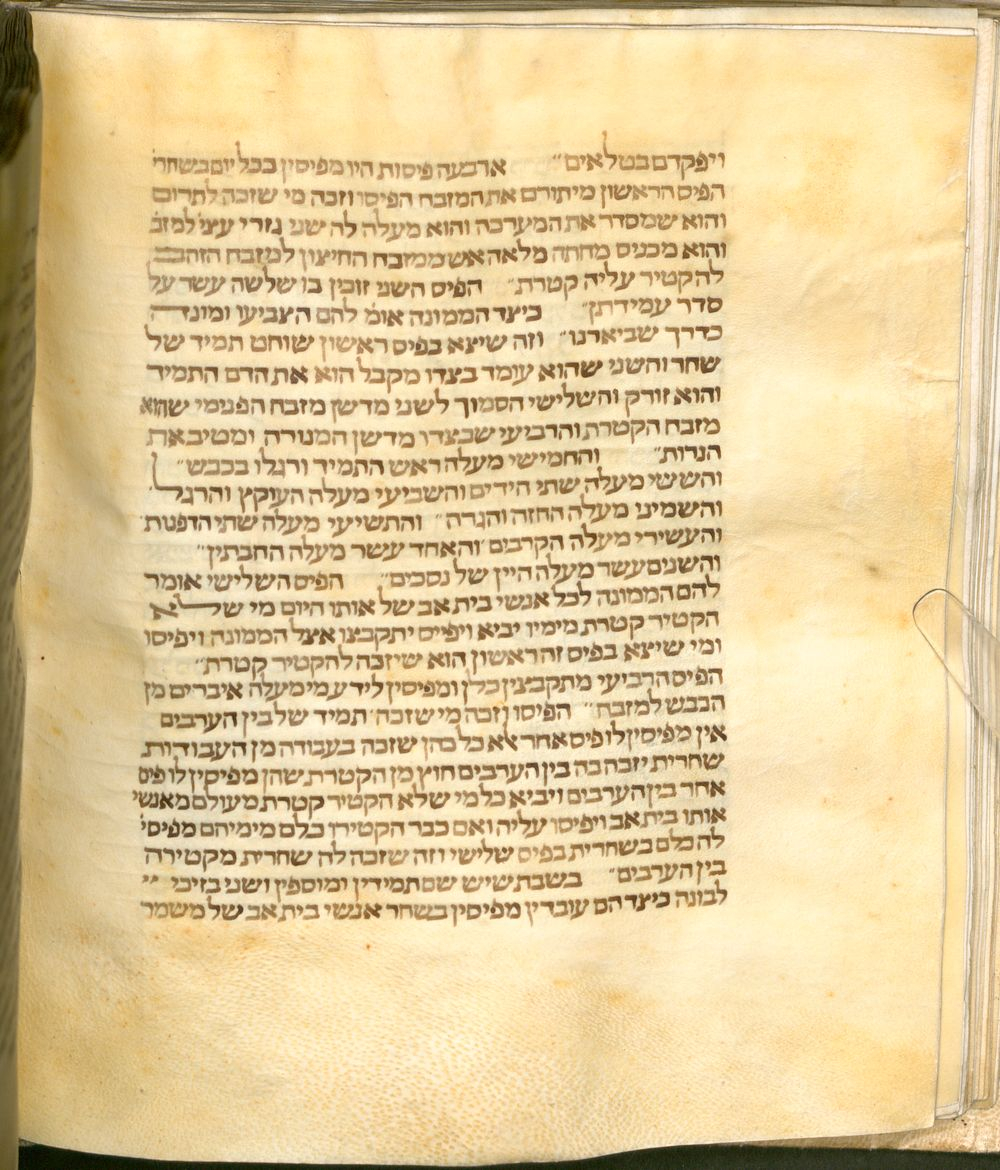 ויפקדם בטלאים״ ארבעה פיסות היו מפיסין בכל יום בשחר׳
הפיס הראשון מי תורם את המזבח הפיסו וזכה מי שזכה לתרום
והוא שמסדר את המערכה והוא מעלה לה שני גזרי עצי׳ למזב׳
והוא מכניס מחתה מלאה אש ממזבח החיצון למזבח הזהב
להקטיר עליה קטרת״ הפיס השני זוכין בו שלשה עשר על
סדר עמידתן״ כיצד הממונה אומ׳ להם הצביעו ומונה
כדרך שביארנו״ וזה שיצא בפיס ראשון שוחט תמיד של
שחר והשני שהוא עומד בצדו מקבל הוא את הדם התמיד
והוא זורק והשלישי הסמוך לשני מדשן מזבח הפנימי שהוא
מזבח הקטרת והרביעי שבצדו מדשן המנורה ומטיב את
הנרות״ והחמישי מעלה ראש התמיד ורגלו בכבש״
והששי מעלה שתי הידים והשביעי מעלה העוקץ והרגל׳
והשמיני מעלה החזה והגרה״ והתשיעי מעלה שתי הדפנות
והעשירי מעלה הקרבים והאחד עשר מעלה החבתין״
והשנים עשר מעלה היין של נסכים״ הפיס השלישי אומר
להם הממונה לכל אנשי בית אב של אותו היום מי שלא
הקטיר קטרת מימיו יביא ויפיס יתקבצו אצל הממונה ויפיסו
ומי שיצא בפיס זה ראשון הוא שיזכה להקטיר קטרת״
הפיס הרביעי מתקבצין כלן ומפיסין לידע מי מעלה איברים מן
הכבש למזבח״ הפיסו וזכה מי שזכה׳ תמיד של בין הערבים
אין מפיסין לו פיס אחר אלא כל כהן שזכה בעבודה מן העבודות
שחרית יזכה בה בין הערבים חוץ מן הקטרת שהן מפיסין לו פיס
אחר בין הערבים ויביא כל מי שלא הקטיר קטרת מעולם מאנשי
אותו בית אב ויפיסו עליה ואם כבר הקטירו כלם מימיהם מפיסי׳
לה כלם בשחרית בפיס שלישי וזה שזכה לה שחרית מקטירה
בין הערבים״ בשבת שיש שם תמידין ומוספין ושני בזיכי
לבונה כיצד הם עובדין מפיסין בשחר אנשי בית אב של משמר